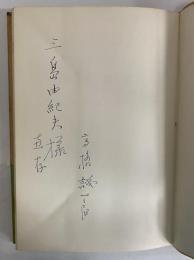 三島由紀夫様
恵存
高橋誠一郎